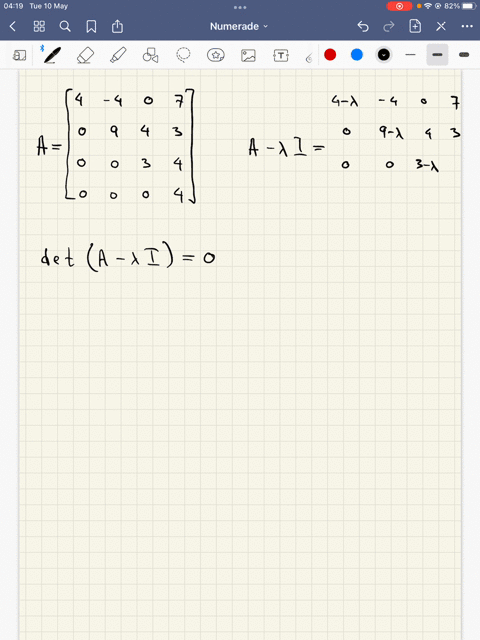 04:19 Tue 10 May 82%
Numerade
A = [4 -4 0 7
0 9 4 3
0 0 3 4
0 0 0 4]
A - λI =
4-λ -4 0 7
0 9-λ 4 3
0 0 3-λ
det (A - λI) = 0